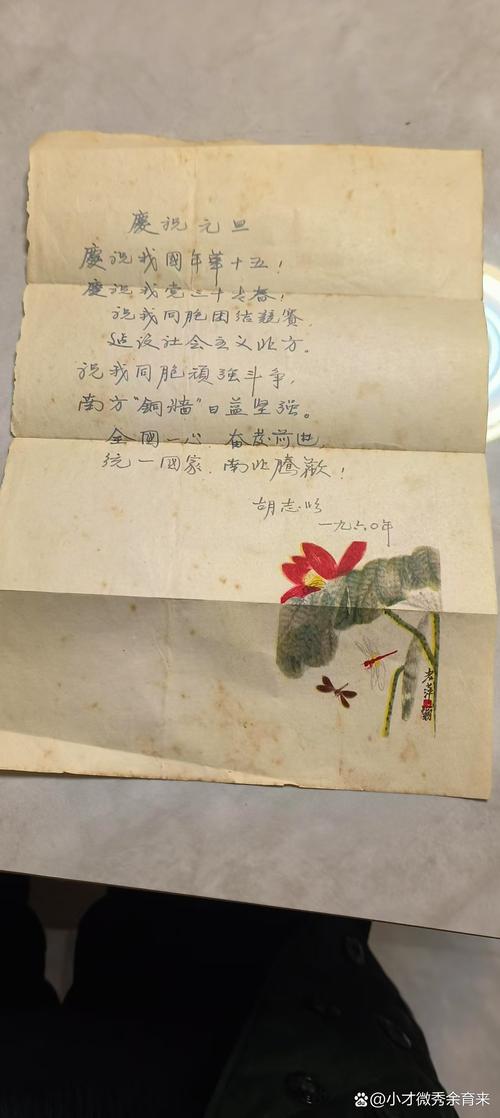 慶祝元旦
慶祝我國年第十五!
慶祝我党三十春!
祝我同胞团結競賽,
建设社会主义北方。
祝我同胞頑強斗争,
南方“銅牆”日益坚强。
全國一心,奋發前进,
统一國家,南北騰歡!
胡志
一九六〇年
老萍
小才微秀余育来